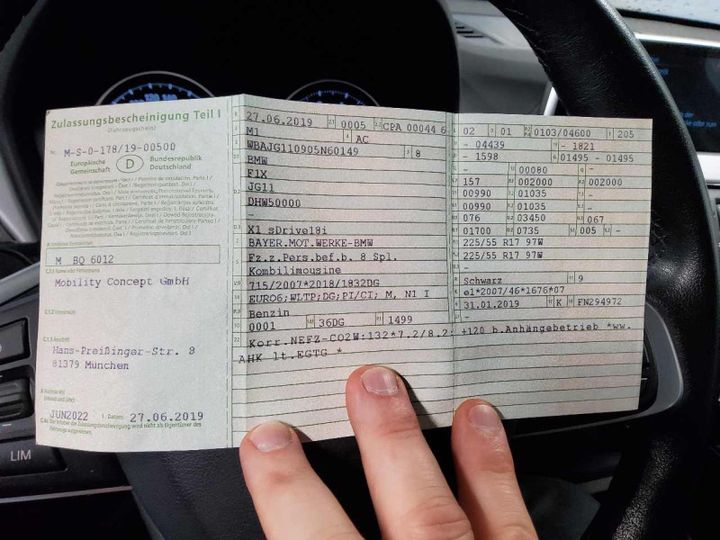 Zulassungsbescheinigung Teil I
(Fahrzeugschein)
Nr. M-S-0-178/19-00500
Europäische Gemeinschaft
D
Bundesrepublik Deutschland
M BQ 6012
Mobility Concept GmbH
Hans-Preißinger-Str. 8
81379 München
JUN2022
27.06.2019
27.06.2019 0005 CPA 00044 6
M1 AC
WBAJG110905N60149 8
BMW
F1X
JG11
DHW50000
-
X1 sDrive18i
BAYER.MOT.WERKE-BMW
Fz.z.Pers.bef.b. 8 Spl.
Kombilimousine
715/2007*2018/1832DG
EURO6;WLTP;DG;PI/CI; M, N1 I
Benzin
0001 36DG 1499
Korr.NEFZ-CO2W:132*7.2/8.2: +120 b.Anhängebetrieb *ww.
AHK lt.EGTG *
02 01 0103/04600 205
- 04439 - 1821
- 1598 01495 - 01495
- 00080 -
157 002000 002000
00990 01035 -
00990 01035 -
076 03450 067
01700 0735 005 -
225/55 R17 97W
225/55 R17 97W
-
Schwarz 9
e1*2007/46*1676*07
31.01.2019 K FN294972
-
LIM